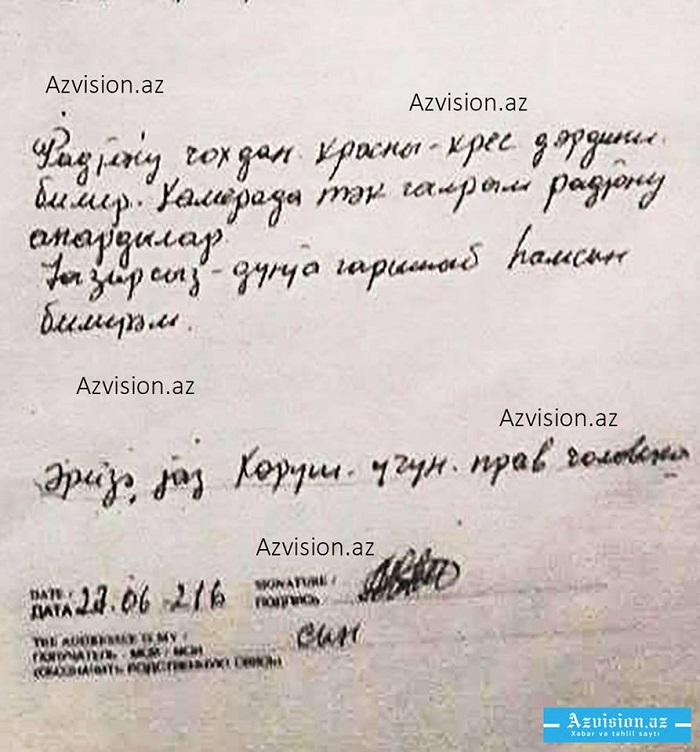 Azvision.az
Azvision.az
Радјону чохдан красны-крес дәрдини
билир. Камерада тәк галрым радјону
апардылар.
дунја гаришыб һамсын
билирәм.
Azvision.az
Azvision.az
Әризә јаз Көруш. үчүн. прав человека
Azvision.az
DATE /
ДАТА 27.06 216
SIGNATURE /
ПОДПИСЬ
THE ADDRESSEE IS MY /
ПОЛУЧАТЕЛЬ - МОЙ / МОЯ
(ОБОЗНАЧИТЬ РОДСТВЕННУЮ СВЯЗЬ)
сын
Azvision.az
Xəbər və təhlil saytı